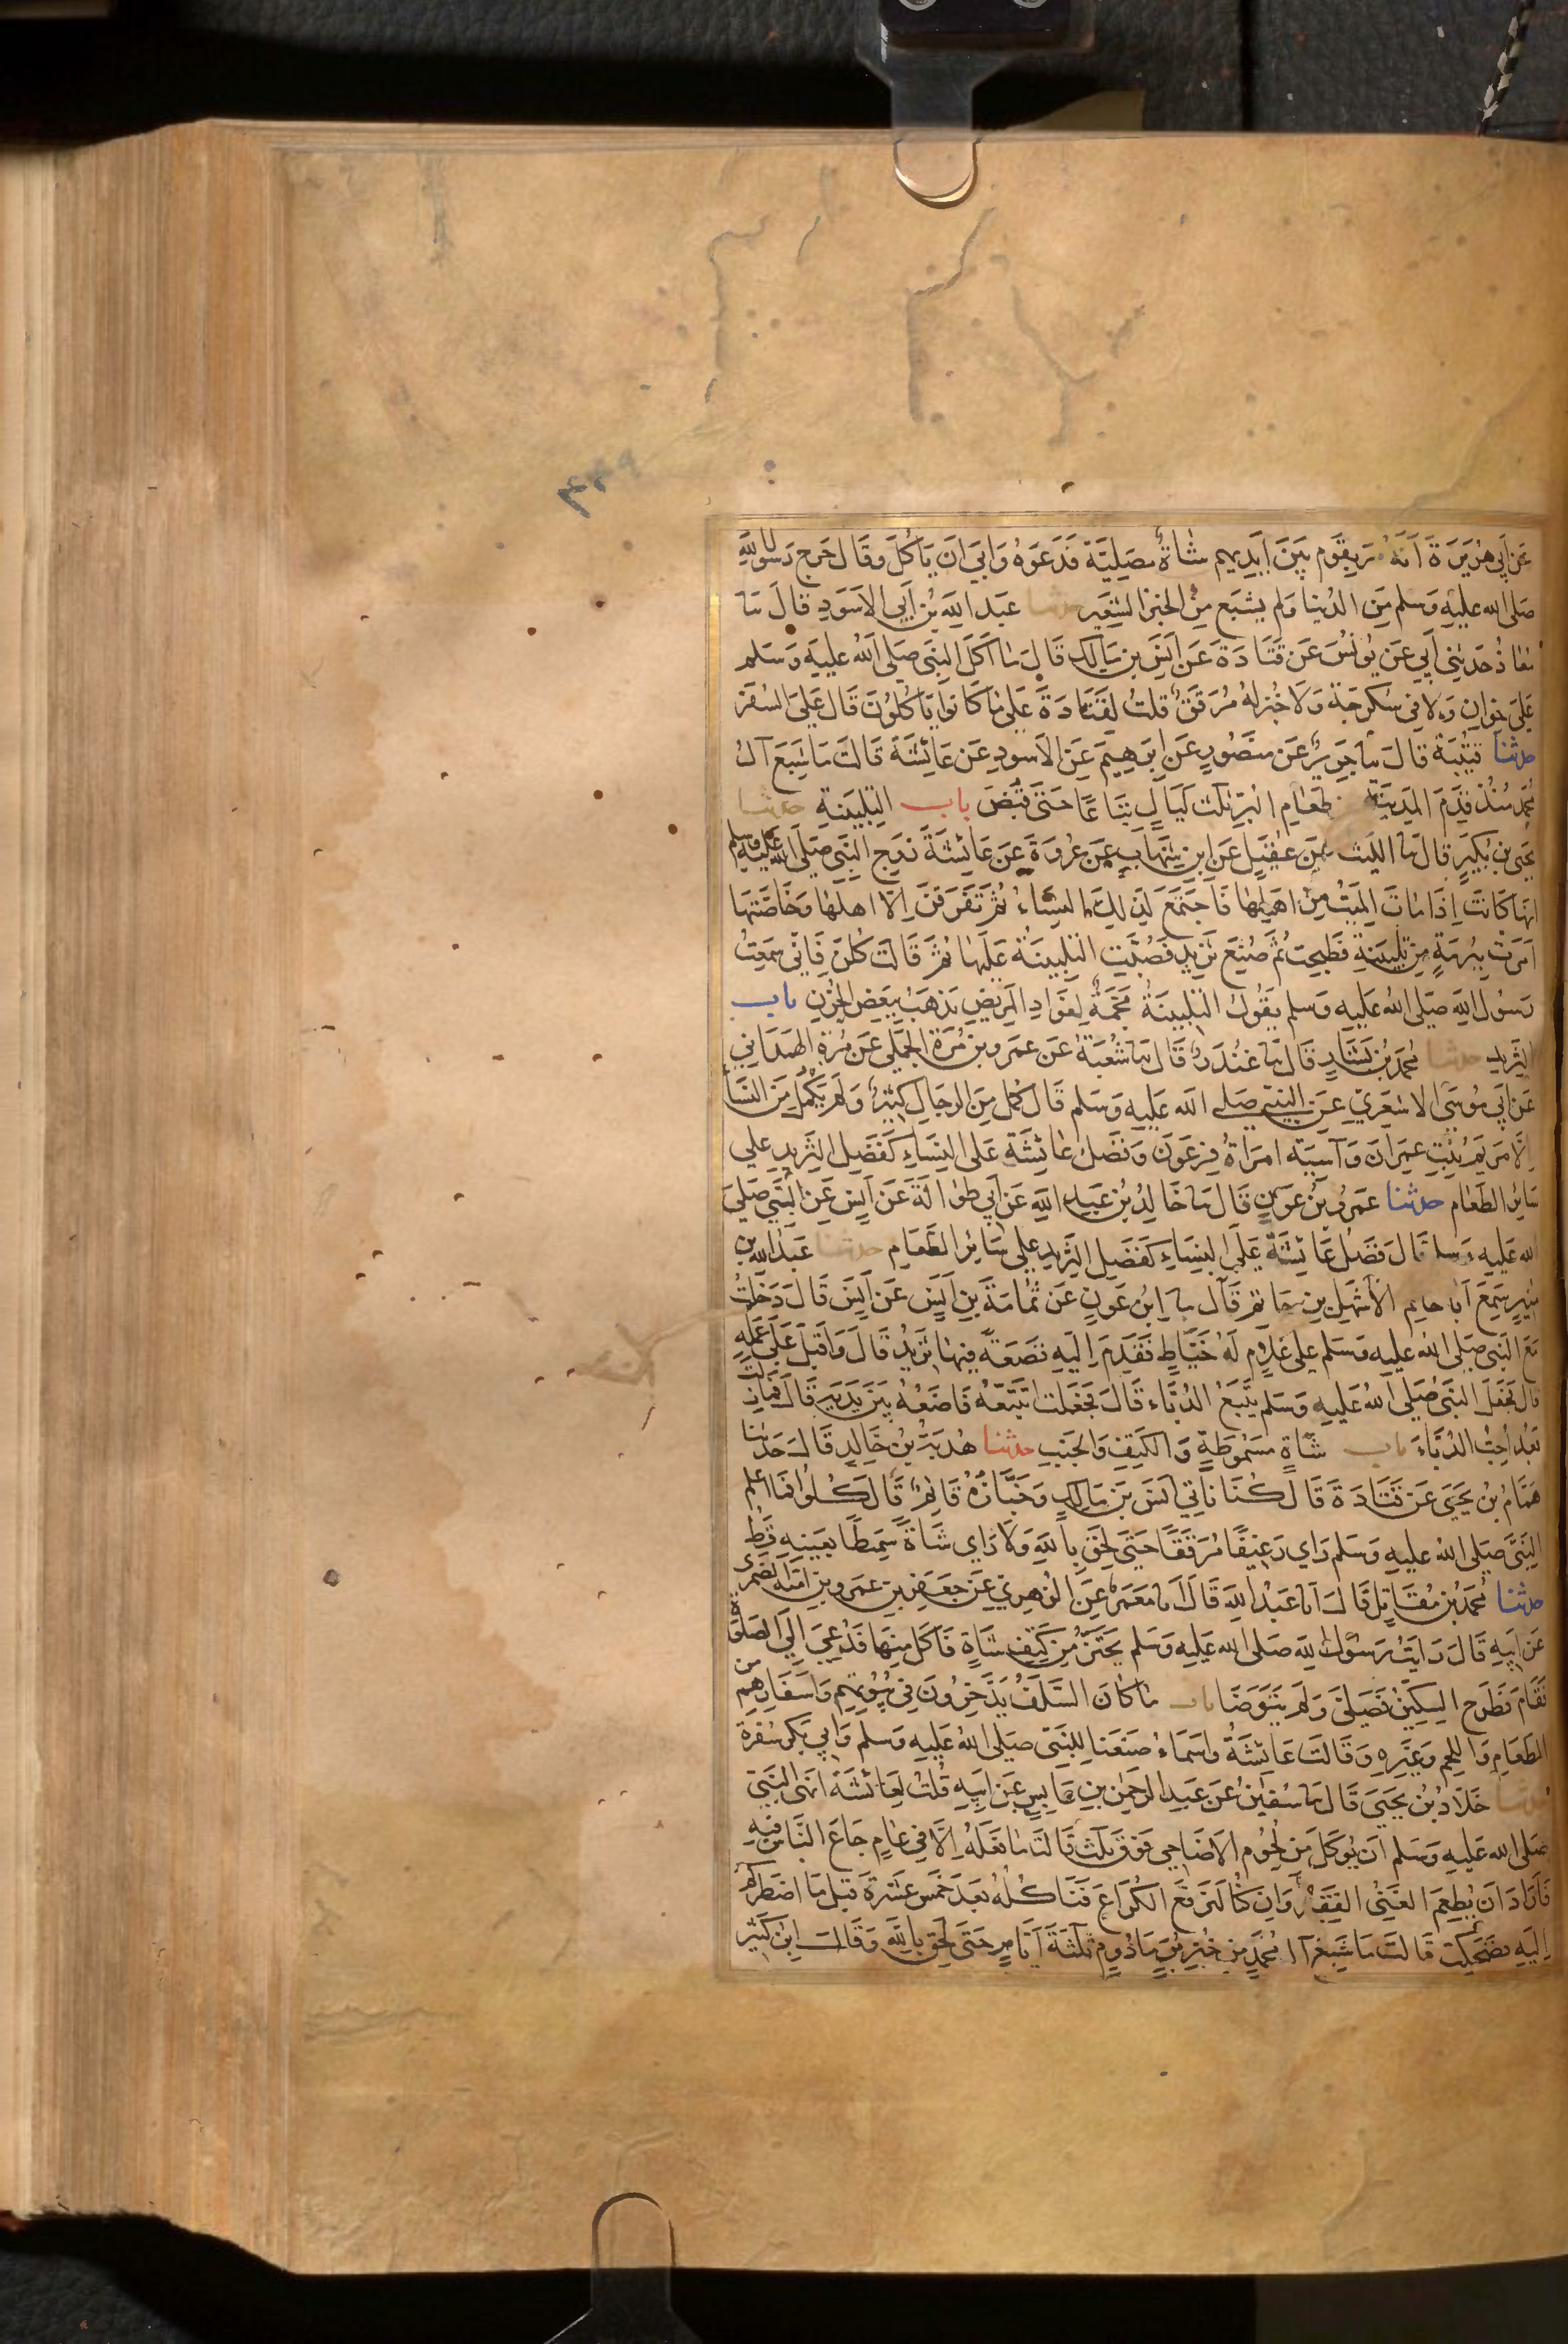 ٤٤٩
عن أبي هُرَيرَةَ أنه مر بِقَومٍ بَينَ أَيدِيهِم شاةٌ مَصلِيَّة فَدَعَوهُ وَأبَى ان يَأكُلَ وقَال خرج رسول الله
صلى الله عليه وسلم مِن الدنيا ولم يشبع مِن الخبز الشعير حدثنا عبد الله بن أبي الأسود قال نا
معاذ حدثني أبي عن يُونسُ عن قتادة عن أنس بن مالك قال ما أكل النبي صلى الله عليه وسلم
على خوانٍ ولا في سُكرجة ولا خبز له مُرقق قلت لقتادة على ما كانوا يأكلون قال على السفر
حدثنا قتيبة قال نا جرير عن منصور عن ابرهيم عن الاسود عن عائشة قالت ما شبع آل
محمد منذ قدم المدينة طعام البر ثلث ليال تباعًا حتى قبض باب التلبينة حدثنا
يحيى بن بكير قال نا الليث عن عقيل عن ابن شهاب عن عروة عن عائشة زوج النبي صلى الله عليه وسلم
انها كانت اذا مات الميت من اهلها فاجتمع لذلك النساء ثم تفرقن الا اهلها وخاصتها
امرت ببرمة من تلبينة فطبخت ثم صنع ثريد فصبت التلبينة عليها ثم قالت كلن فاني سمعت
رسول الله صلى الله عليه وسلم يقول التلبينة مجمة لفؤاد المريض تذهب ببعض الحزن باب
الثريد حدثنا محمد بن بشار قال نا غندر قال نا شعبة عن عمرو بن مرة الجملي عن مرة الهمداني
عن ابي موسى الاشعري عن النبي صلى الله عليه وسلم قال كمل من الرجال كثير ولم يكمل من النسا
الا مريم بنت عمران وآسية امراة فرعون وفضل عائشة على النساء كفضل الثريد على
سائر الطعام حدثنا عمرو بن عون قال نا خالد بن عبد الله عن ابي طوالة عن انس عن النبي صلى
الله عليه وسلم قال فضل عائشة على النساء كفضل الثريد على سائر الطعام حدثنا عبد الله بن
منير سمع أبا حاتم الأشهل بن حاتم قال نا ابن عون عن ثمامة بن انس عن انس قال دخلت
مع النبي صلى الله عليه وسلم على غلام له خياط فقدم اليه قصعة فيها ثريد قال واقبل على عمله
قال فجعل النبي صلى الله عليه وسلم يتبع الدباء قال فجعلت اتتبعه فاضعه بين يديه قال فما زلت
بعد احب الدباء باب شاة مسموطة والكتف والجنب حدثنا هدبة بن خالد قال حدثنا
همام بن يحيى عن قتادة قال كنا ناتي انس بن مالك وخبازه قائم قال كلوا فما اعلم
النبي صلى الله عليه وسلم راي رغيفا مرققا حتى لحق بالله ولا راي شاة سميطا بعينه قط
حدثنا محمد بن مقاتل قال انا عبد الله قال انا معمر عن الزهري عن جعفر بن عمرو بن امية الضمرى
عن ابيه قال رايت رسول الله صلى الله عليه وسلم يحتز من كتف شاة فاكل منها فدعي الى الصلوة
فقام فطرح السكين فصلى ولم يتوضا باب ما كان السلف يدخرون في بيوتهم واسفارهم من
الطعام واللحم وغيره وقالت عائشة واسماء صنعنا للنبي صلى الله عليه وسلم وابي بكر سفرة
حدثنا خلاد بن يحيى قال نا سفين عن عبد الرحمن بن عابس عن ابيه قلت لعائشة انهى النبي
صلى الله عليه وسلم ان يوكل من لحوم الاضاحي فوق ثلث قالت ما فعله الا في عام جاع الناس فيه
فاراد ان يطعم الغني الفقير وان كنا لنرفع الكراع فناكله بعد خمس عشرة قيل ما اضطركم
اليه فضحكت قالت ما شبع آل محمد من خبز بر مادوم ثلثة ايام حتى لحق بالله وقال ابن كثير